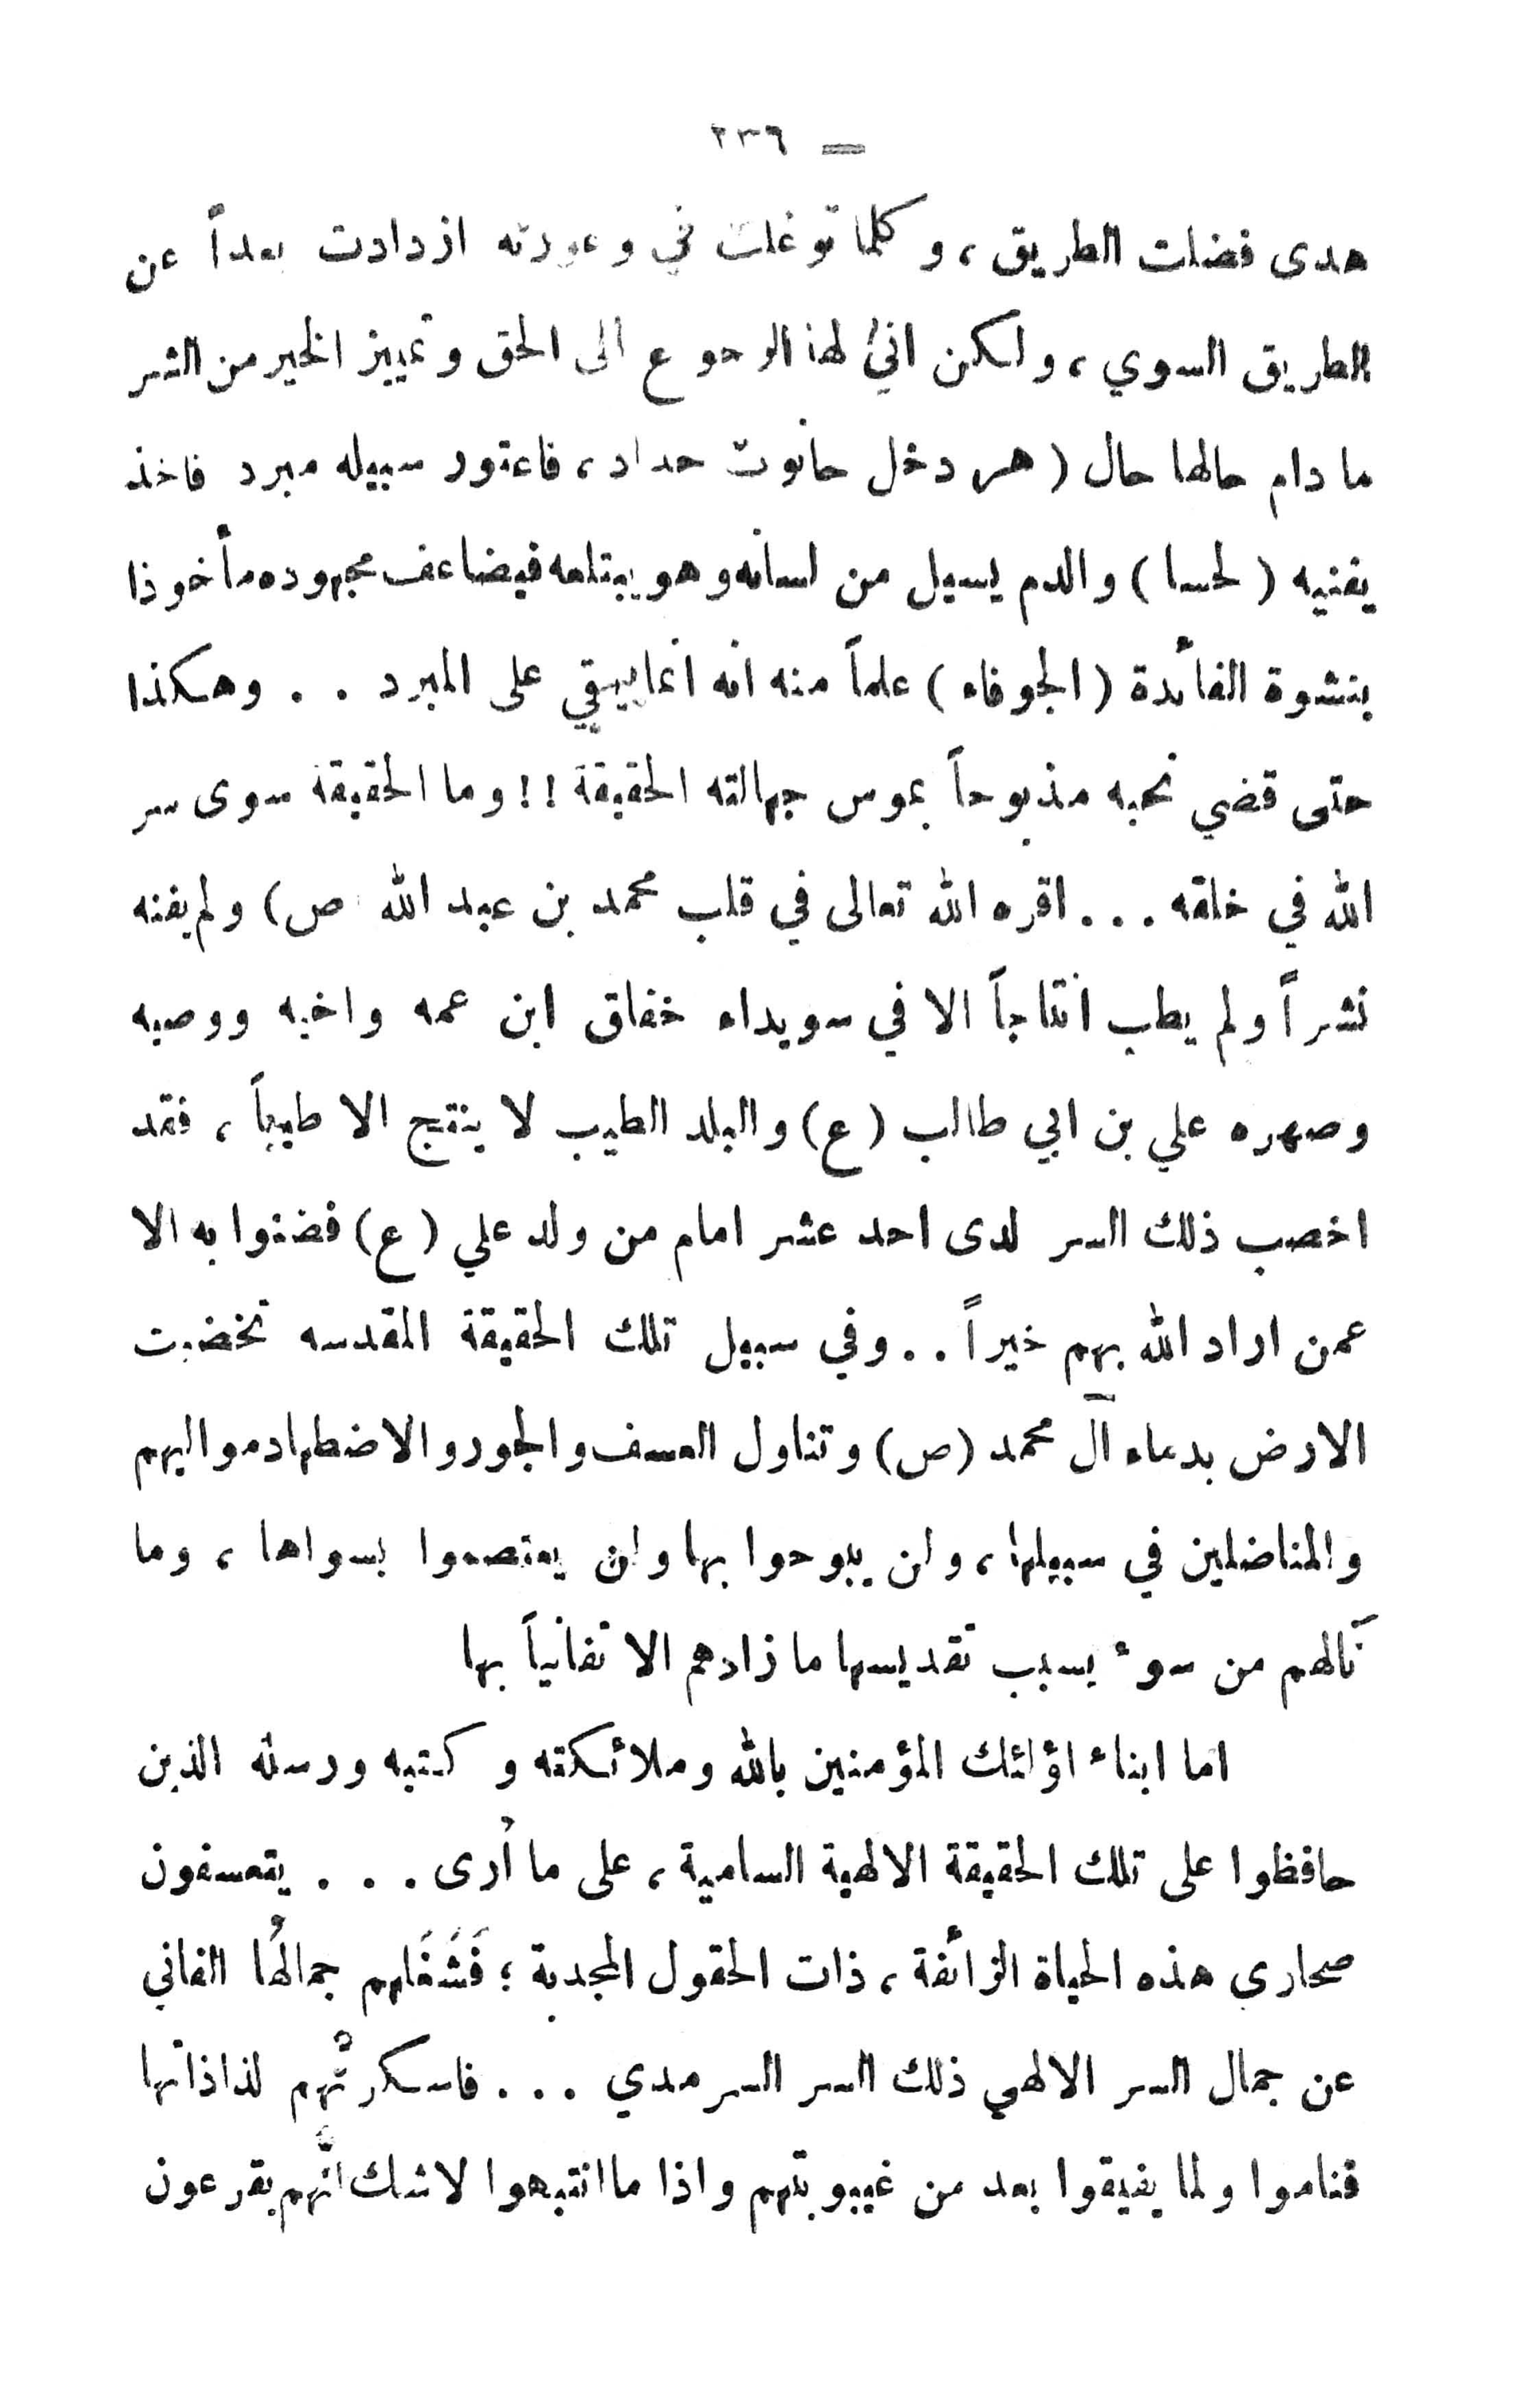 — ٢٣٦
هدى فضلت الطريق ، وكلما توغلت في وعورته ازدادت بعداً عن
الطريق السوي ، ولكن انى لهذا الرجوع الى الحق وتمييز الخير من الشر
ما دام حالها حال ( هر دخل حانوت حداد ، فاعتور سبيله مبرد فاخذ
يفنيه ( لحسا ) والدم يسيل من لسانه وهو يبتلعه فيضاعف مجهوده مأخوذا
بنشوة الفائدة ( الجوفاء ) علماً منه انه انما يبقي على المبرد . . وهكذا
حتى قضي نحبه مذبوحاً بموس جهالته الحقيقة !! وما الحقيقة سوى سر
الله في خلقه . . . اقره الله تعالى في قلب محمد بن عبد الله ص) ولم يفنه
نشراً ولم يطب انتاجاً الا في سويداء خفاق ابن عمه واخيه ووصيه
وصهره علي بن ابي طالب (ع) والبلد الطيب لا ينتج الا طيباً ، فقد
اخصب ذلك السر لدى احد عشر امام من ولد علي (ع) فضنوا به الا
عمن اراد الله بهم خيراً . . وفي سبيل تلك الحقيقة المقدسه تخضبت
الارض بدماء آل محمد (ص) وتناول العسف والجور والاضطهاد مواليهم
والمناضلين في سبيلها ، ولن يبوحوا بها ولن يعتصموا بسواها ، وما
نالهم من سوء بسبب تقديسها ما زادهم الا تفانياً بها
اما ابناء اؤلئك المؤمنين بالله وملائكته وكتبه ورسله الذين
حافظوا على تلك الحقيقة الالهية السامية ، على ما أرى . . . يتعسفون
صحاري هذه الحياة الزائفة ، ذات الحقول المجدبة ؛ فَشَغَلهم جمالهُا الفاني
عن جمال السر الالهي ذلك السر السرمدي . . . فاسكرتْهم لذاذاتها
فناموا ولما يفيقوا بعد من غيبوبتهم واذا ما انتبهوا لاشك انّهم يقرعون